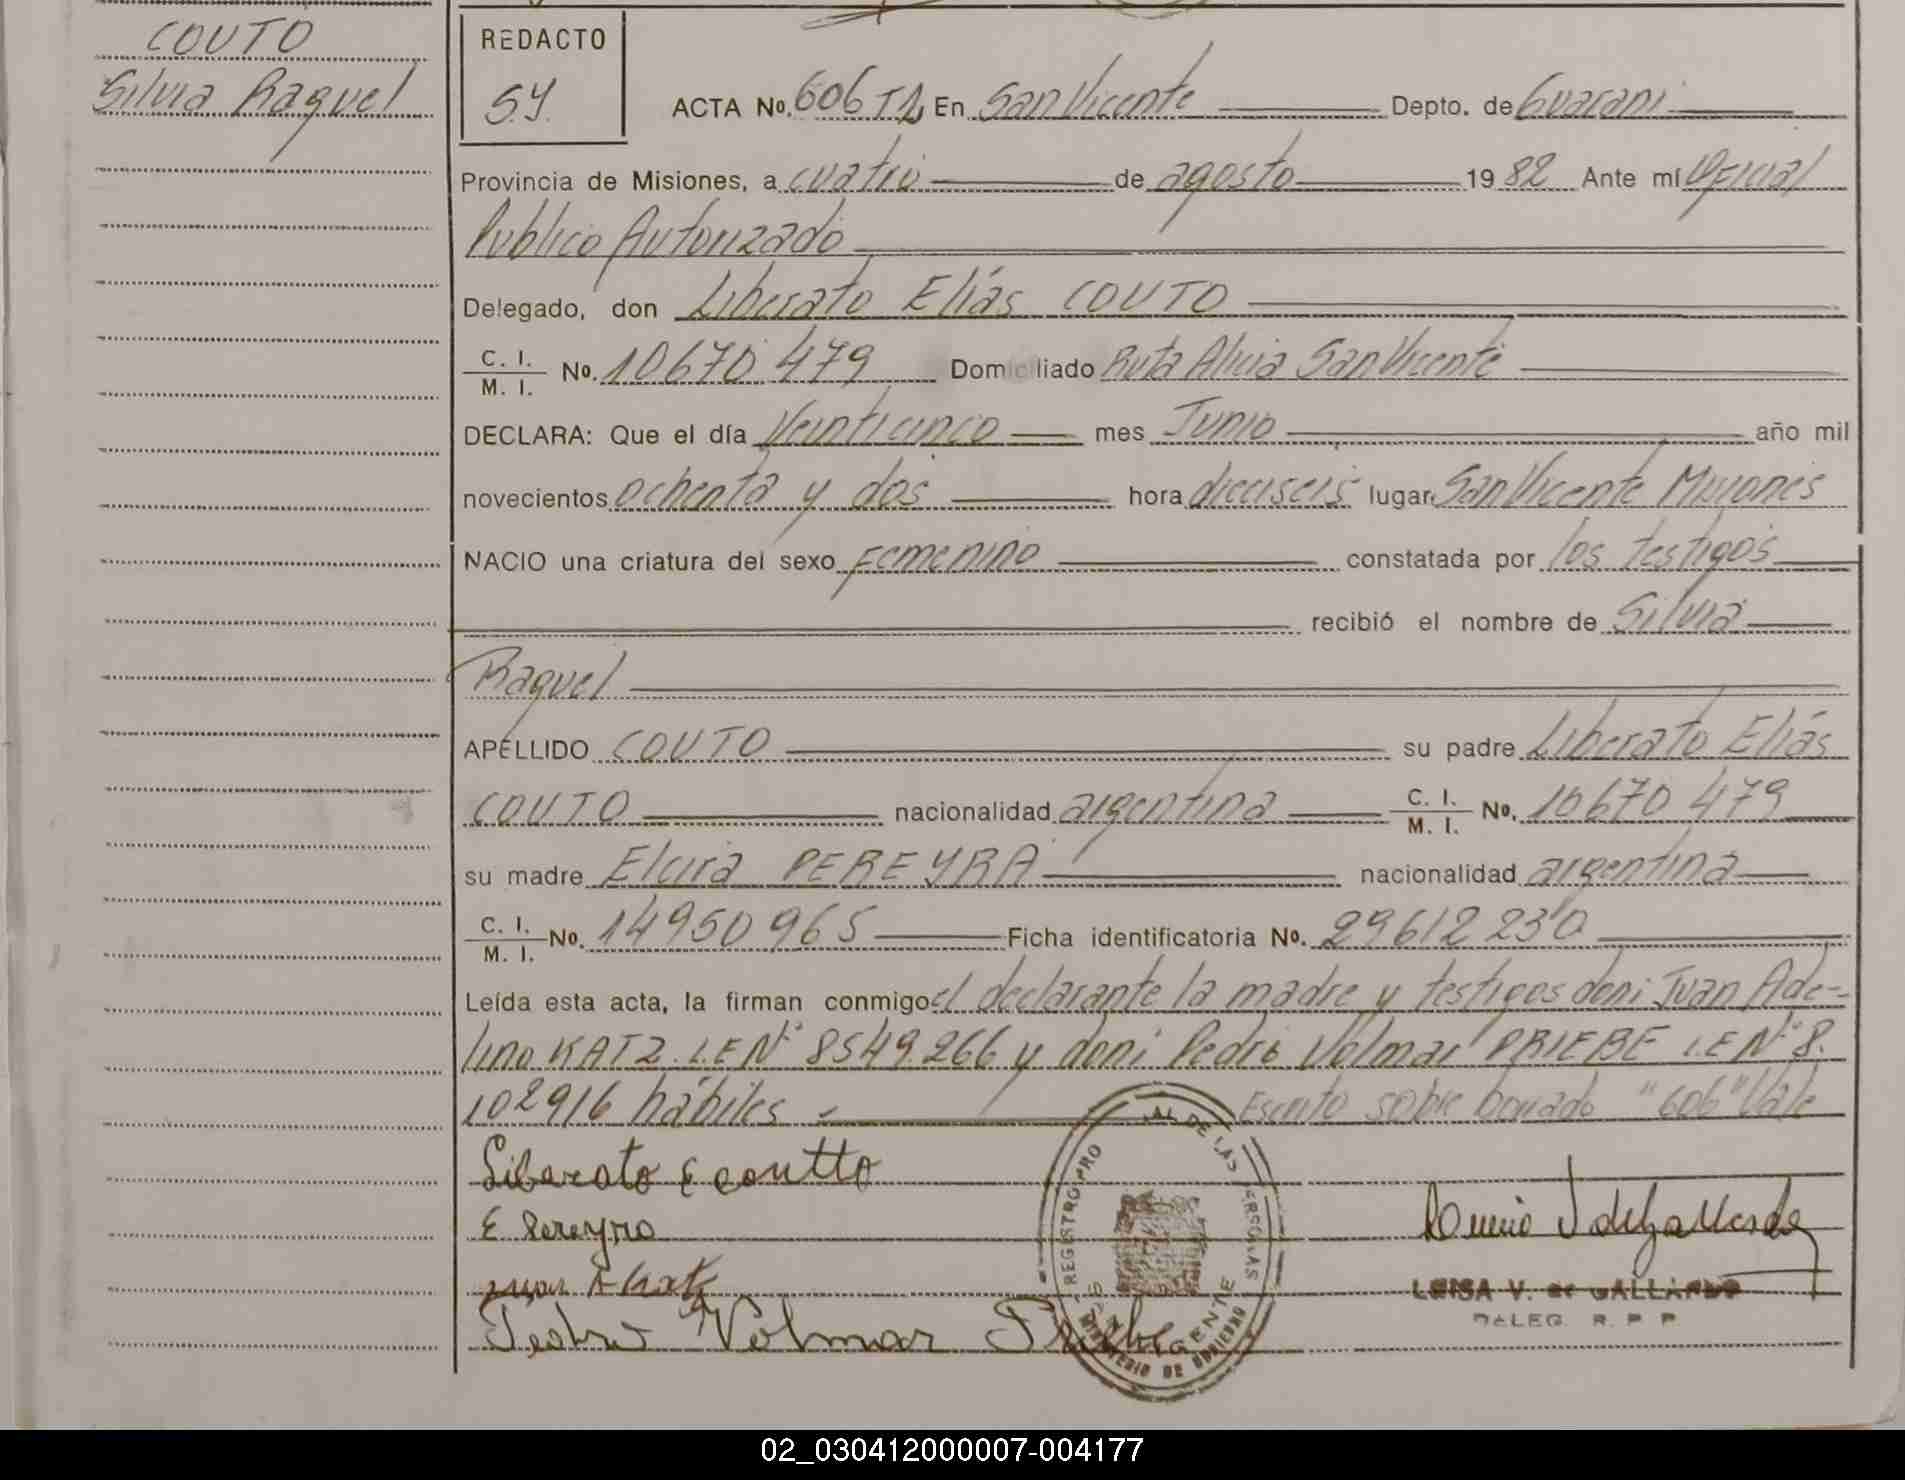 COUTO
Silvia Raquel
REDACTO
S.Y.
ACTA No. 606 T 2 En San Vicente Depto. de Guarani
Provincia de Misiones, a cuatro de agosto 1982 Ante mí Oficial
Publico Autorizado
Delegado, don Liberato Elías COUTO
C. I. M. I. No. 10670 479 Domiciliado Ruta Alicia San Vicente
DECLARA: Que el día Veinticinco mes Junio año mil
novecientos ochenta y dos hora dieciseis lugar San Vicente Misiones
NACIO una criatura del sexo Femenino constatada por los testigos
recibió el nombre de Silvia
Raquel
APELLIDO COUTO su padre Liberato Elías
COUTO nacionalidad argentina C. I. M. I. No. 10670 479
su madre Elcira PEREYRA nacionalidad argentina
C. I. M. I. No. 14950 965 Ficha identificatoria No. 29612 230
Leída esta acta, la firman conmigo el declarante la madre y testigos don: Juan Ade-
lino KATZ. L.E Nº 8549.266 y don: Pedro Volmar PRIEBE L.E Nº 8.
102916 hábiles. Escrito sobre borrado "606" Vale
Liberato E coutto
E Pereyra
Juan A Katz
Pedro Volmar Priebe
REGISTRO PRO AL DE LAS PERSONAS
VICENTE
MINISTERIO DE GOBIERNO
LUISA V. de GALLARDO
DELEG. R. P. P.
02_030412000007-004177